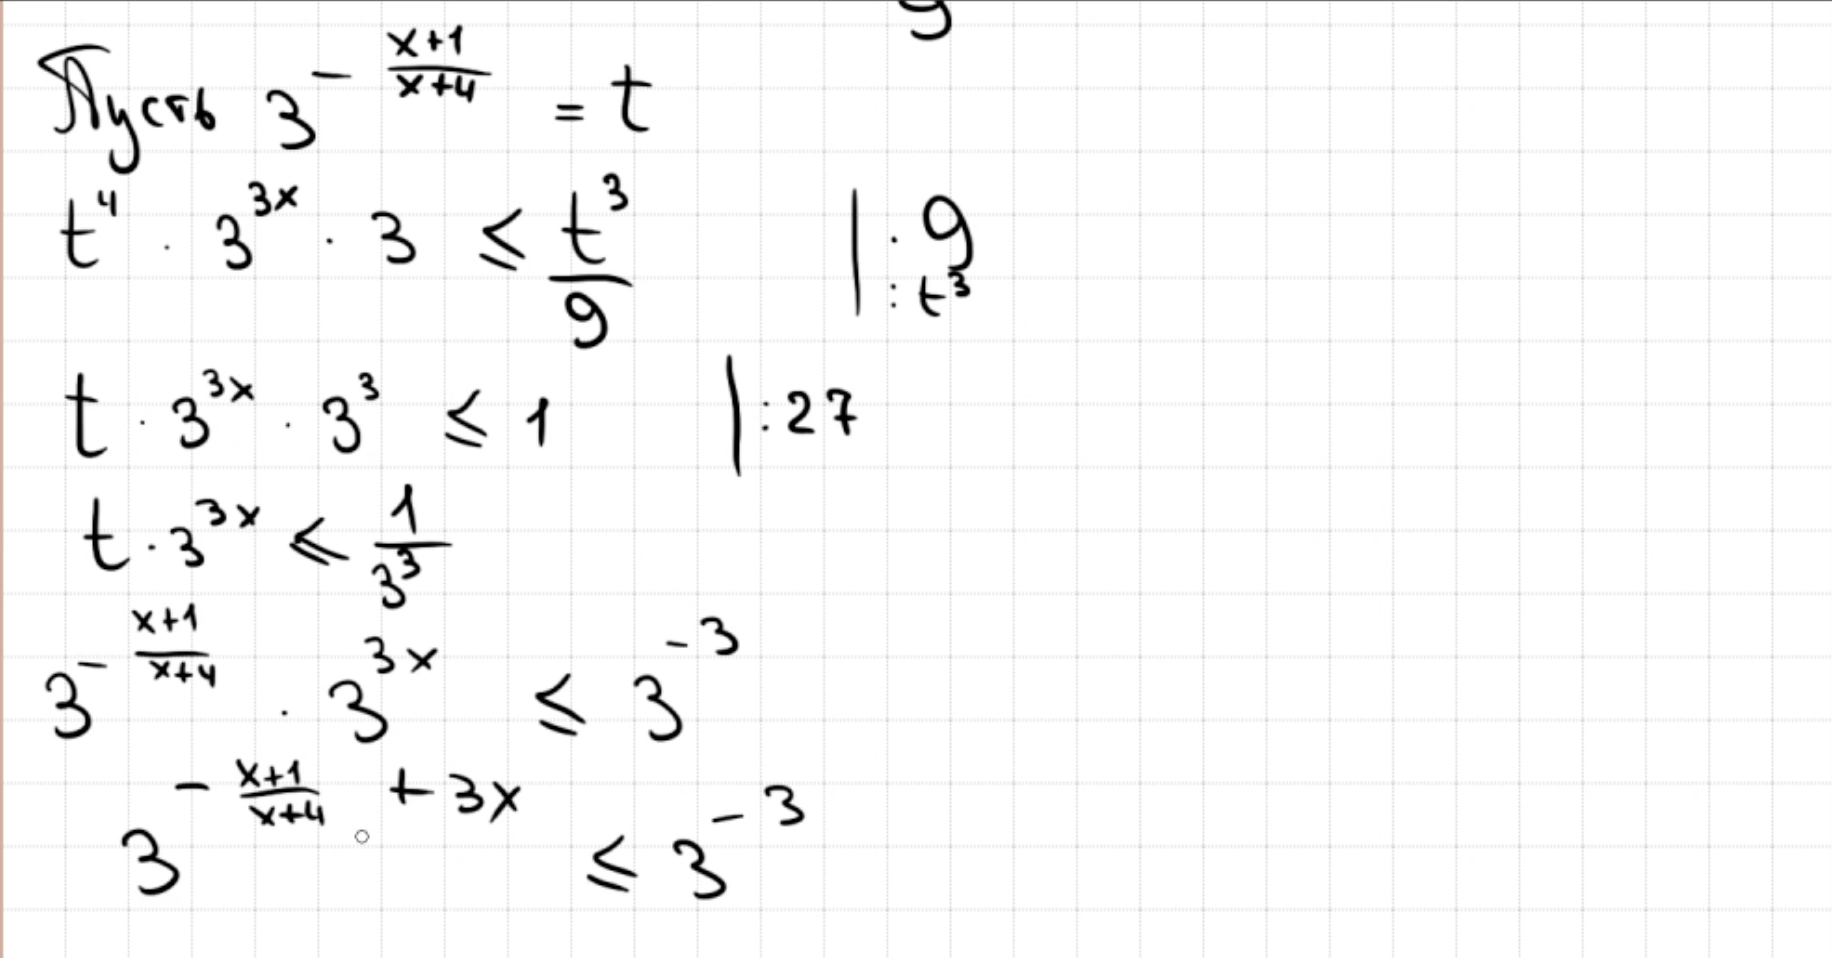 9
Пусть 3^{-\frac{x+1}{x+4}} = t
t^4 · 3^{3x} · 3 ≤ \frac{t^3}{9} | : 9 : t^3
t · 3^{3x} · 3^3 ≤ 1 | : 27
t · 3^{3x} ≤ \frac{1}{3^3}
3^{-\frac{x+1}{x+4}} · 3^{3x} ≤ 3^{-3}
3^{-\frac{x+1}{x+4} + 3x} ≤ 3^{-3}